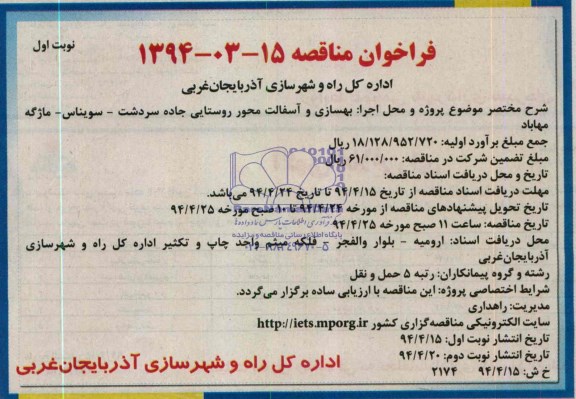 نوبت اول
فراخوان مناقصه ۱۵-۰۳-۱۳۹۴
اداره کل راه و شهرسازی آذربایجان‌غربی
شرح مختصر موضوع پروژه و محل اجرا: بهسازی و آسفالت محور روستایی جاده سردشت - سویناس- ماژگه
مهاباد
جمع مبلغ برآورد اولیه: ۱۸/۱۲۸/۹۵۲/۷۲۰ ریال
مبلغ تضمین شرکت در مناقصه: ۶۱/۰۰۰/۰۰۰ ریال
تاریخ و محل دریافت اسناد مناقصه:
مهلت دریافت اسناد مناقصه از تاریخ ۹۴/۴/۱۵ تا تاریخ ۹۴/۴/۲۴ می‌باشد.
تاریخ تحویل پیشنهادهای مناقصه از مورخه ۹۴/۴/۲۴ تا ۱۰ صبح مورخه ۹۴/۴/۲۵
تاریخ مناقصه: ساعت ۱۱ صبح مورخه ۹۴/۴/۲۵
محل دریافت اسناد: ارومیه - بلوار والفجر - فلکه میثم واحد چاپ و تکثیر اداره کل راه و شهرسازی
آذربایجان‌غربی
رشته و گروه پیمانکاران: رتبه ۵ حمل و نقل
شرایط اختصاصی پروژه: این مناقصه با ارزیابی ساده برگزار می‌گردد.
مدیریت: راهداری
سایت الکترونیکی مناقصه‌گزاری کشور http://iets.mporg.ir
تاریخ انتشار نوبت اول: ۹۴/۴/۱۵
تاریخ انتشار نوبت دوم: ۹۴/۴/۲۰
خ ش: ۹۴/۴/۱۵ ۲۱۷۴
اداره کل راه و شهرسازی آذربایجان‌غربی